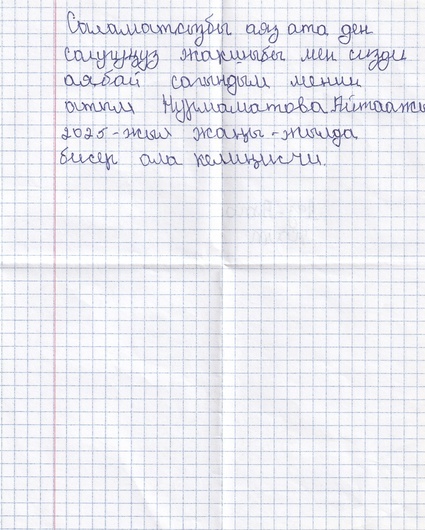 Саламатсызбы аяз ата ден
солуңуз жакшыбы мен сизди
аябай сагындым менин
атым Нурмаматова
2025-жыл жаңы-жылда
бисер ала келиңизчи.